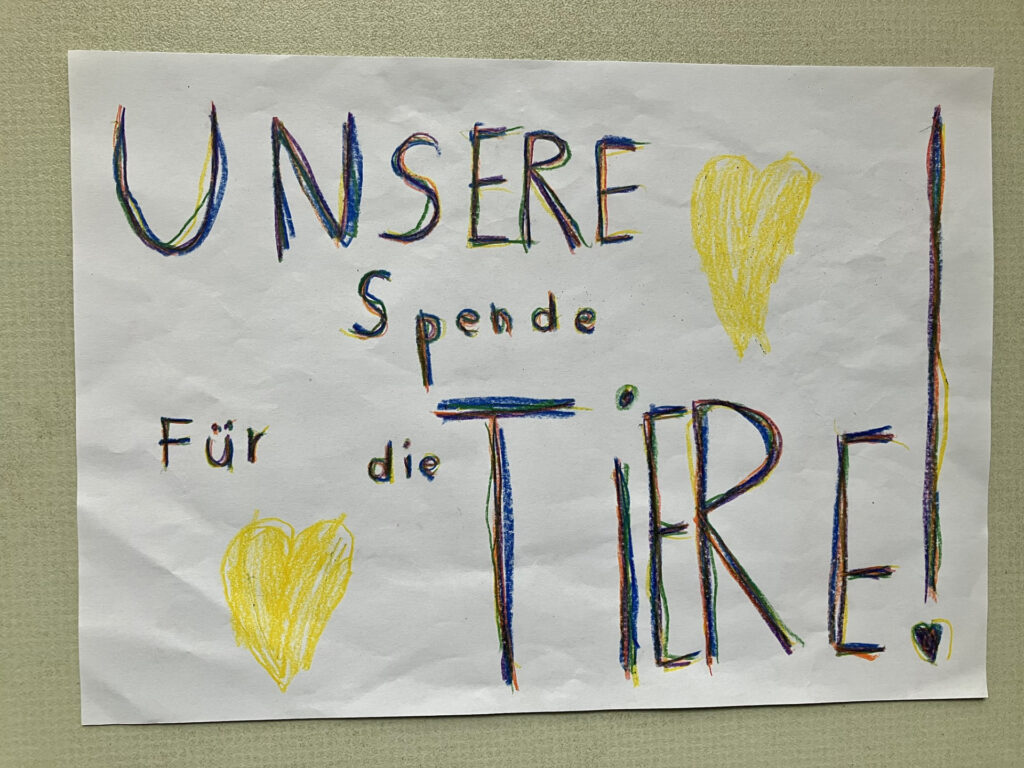 UNSERE
Spende
Für die TiERE!